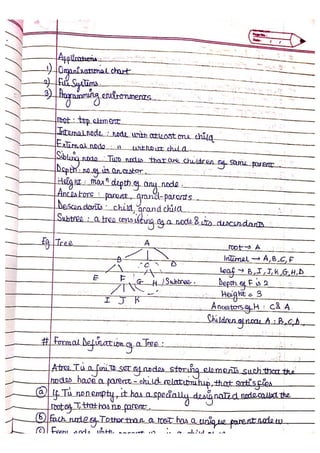 Applications
1) Organisational chart
2) File Systems
3) Programming environments
root : top element
Internal node : node with atleast one child
External node : " without child.
Sibling node Two nodes that are children of same parent.
Depth : no. of its ancestor.
Height : maxm depth of any node.
Ancestors : parent, grand-parents.
Descendants : child, grand child.
Subtree : a tree consisting of a node & its descendants
Eg. Tree
A
root → A
B C D
Internal → A, B, C, F
E F G H /Subtree.
Leaf → B, I, J, K, G, H, D
Depth of F is 2
I J K
Height = 3
Ancestors of H : C & A
Children of node A : B, C, D.
# Formal Defination of a Tree :
A tree T is a finite set of nodes storing elements such that the
nodes have a parent - child relationship, that satisfies
(a) If T is nonempty, it has a specially designated node called the
root of T, that has no parent.
(b) Each node of T other than a root has a unique parent node w.
(c) Every node with parent